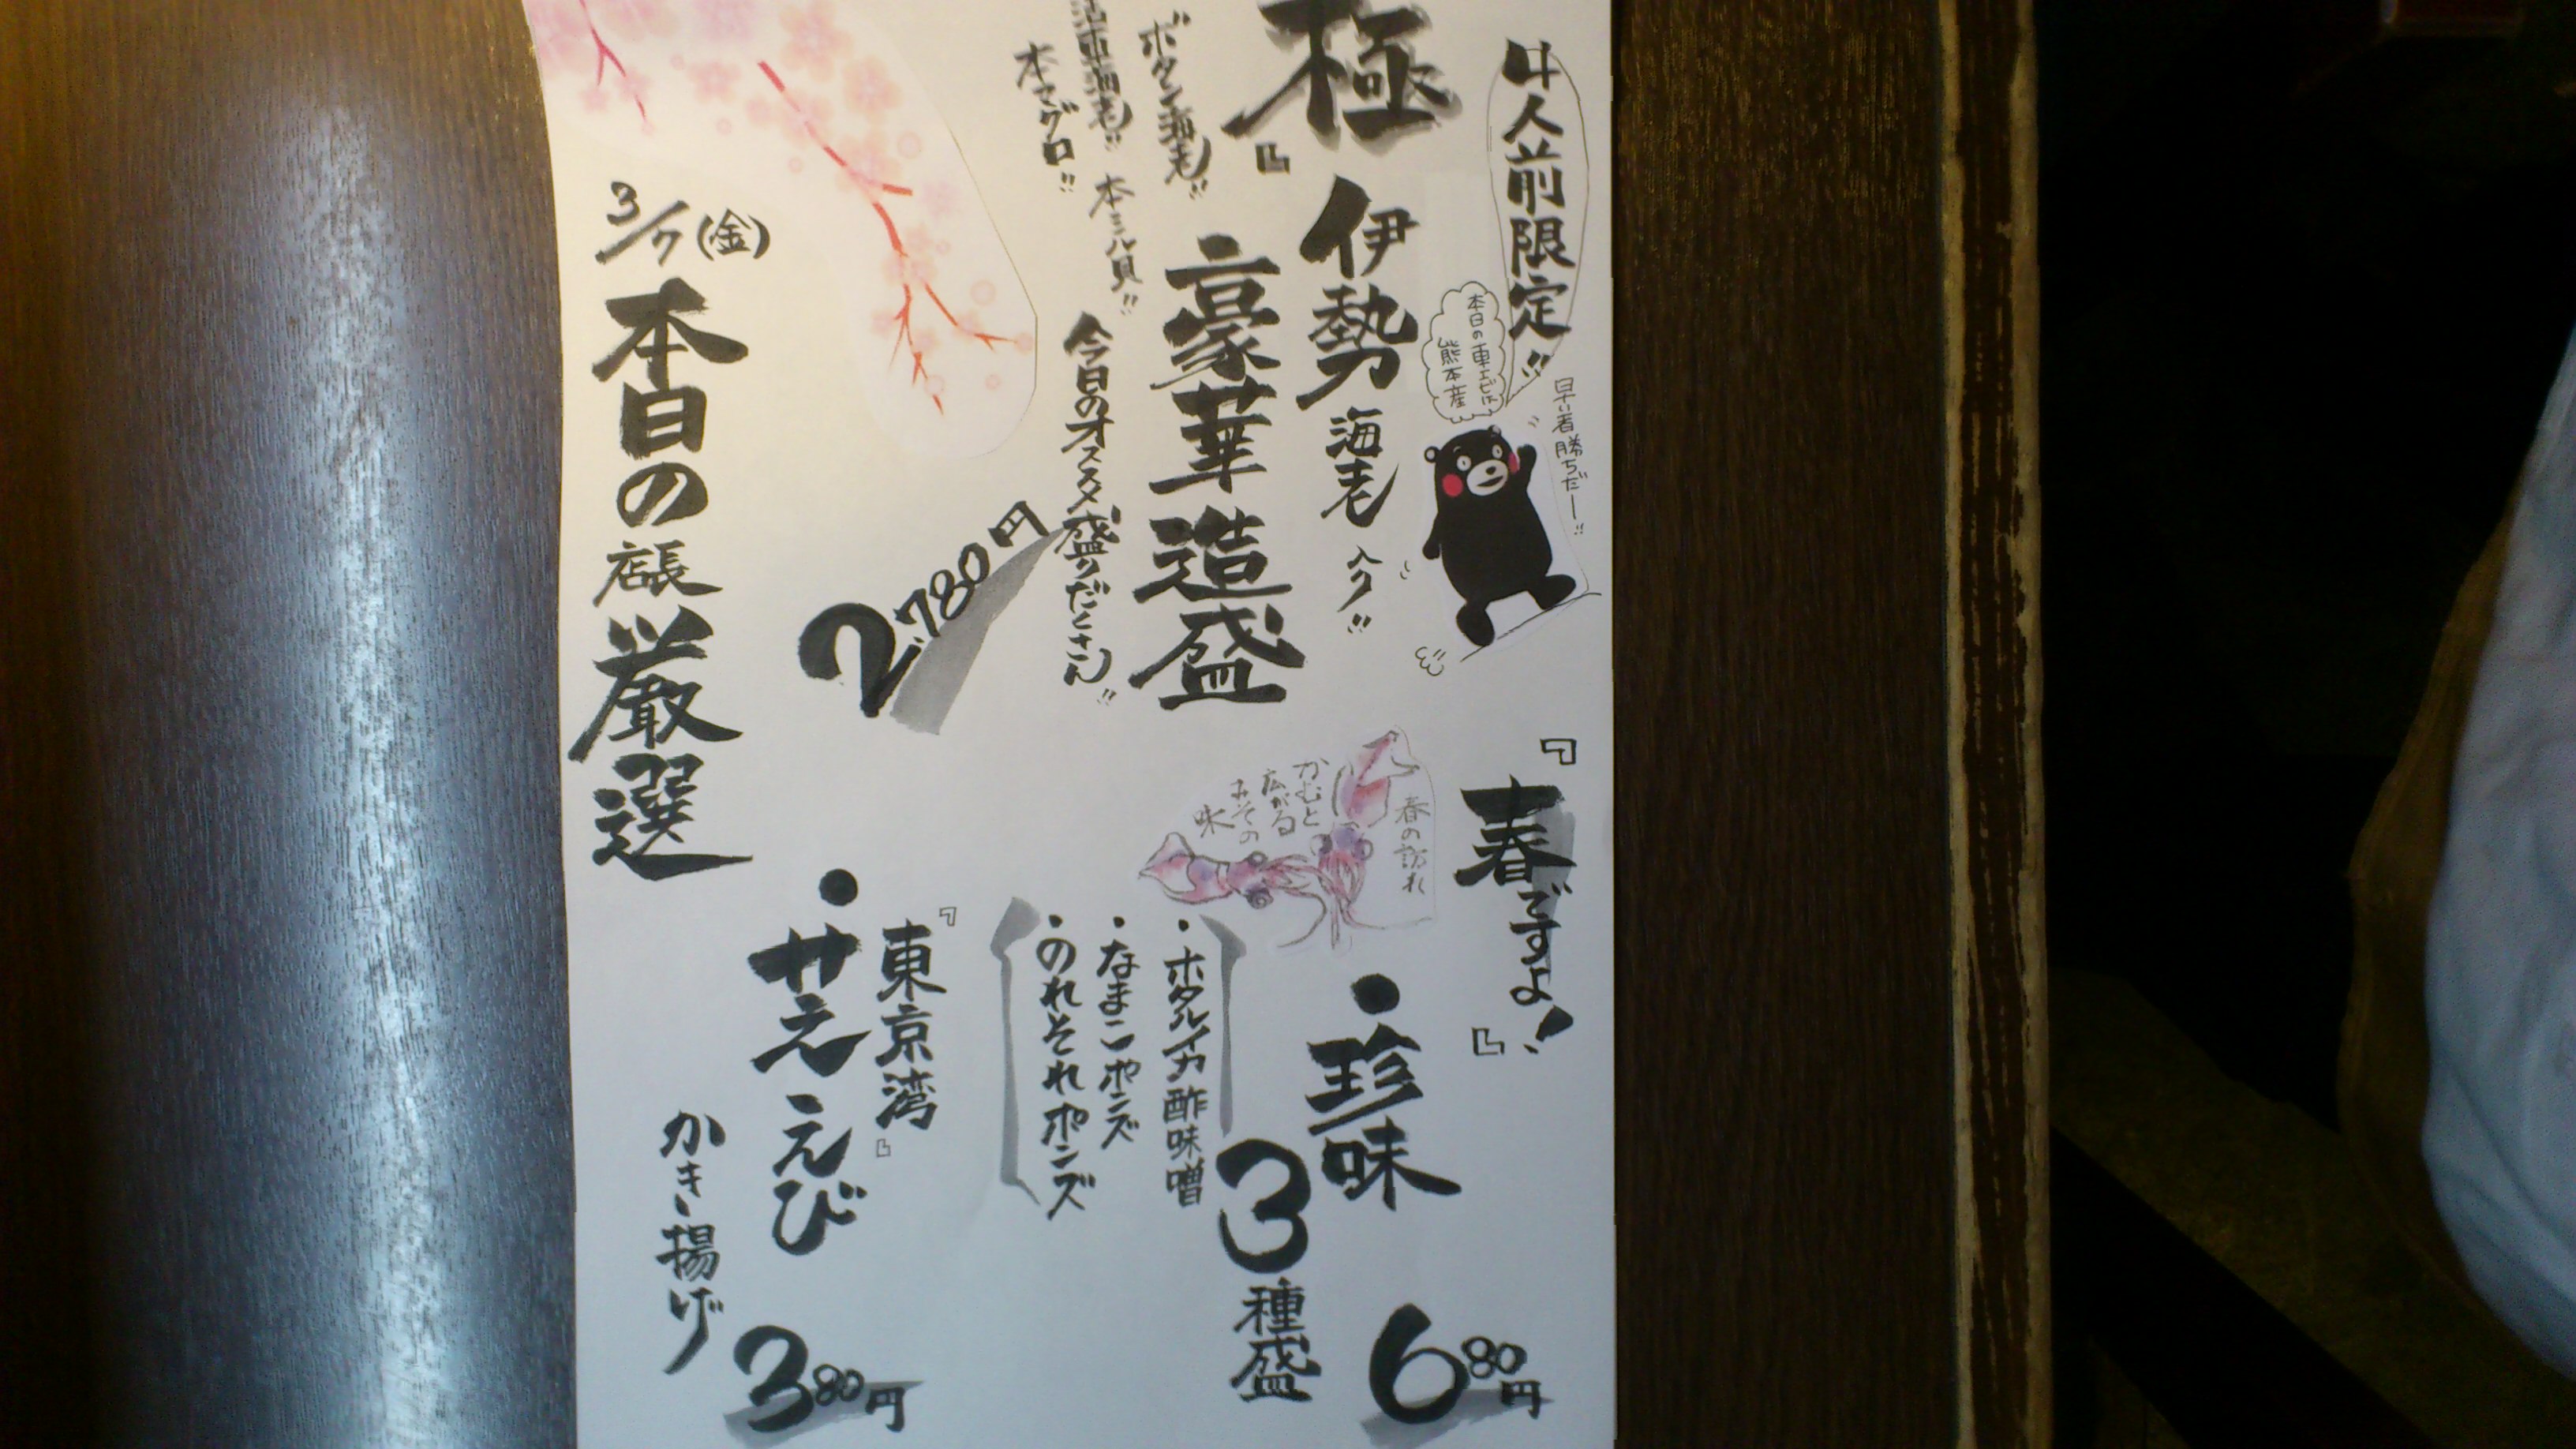 4人前限定!!
早い者勝ちだー!!
本日の車エビは
熊本産
極』
伊勢海老入り!!
豪華造盛
ボタン海老!!
車海老!! 本ミル貝!!
本マグロ!!
今日のオススメ盛りだくさん!!
2,780円
『春ですよ!』
春の訪れ
かむと
広がる
みその
味
・珍味
3種盛
680円
・ホタルイカ酢味噌
・なまこポンズ
・のれそれポンズ
『東京湾』
・サええび
かき揚げ
380円
3/7(金)
本日の店長厳選